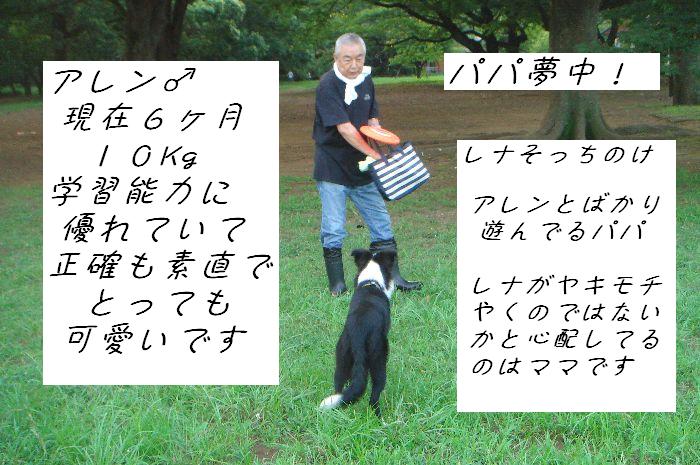 アレン♂
現在６ケ月
１０Kg
学習能力に
優れていて
正確も素直で
とっても
可愛いです
パパ夢中！
レナそっちのけ
アレンとばかり
遊んでるパパ
レナがヤキモチ
やくのではない
かと心配してる
のはママです